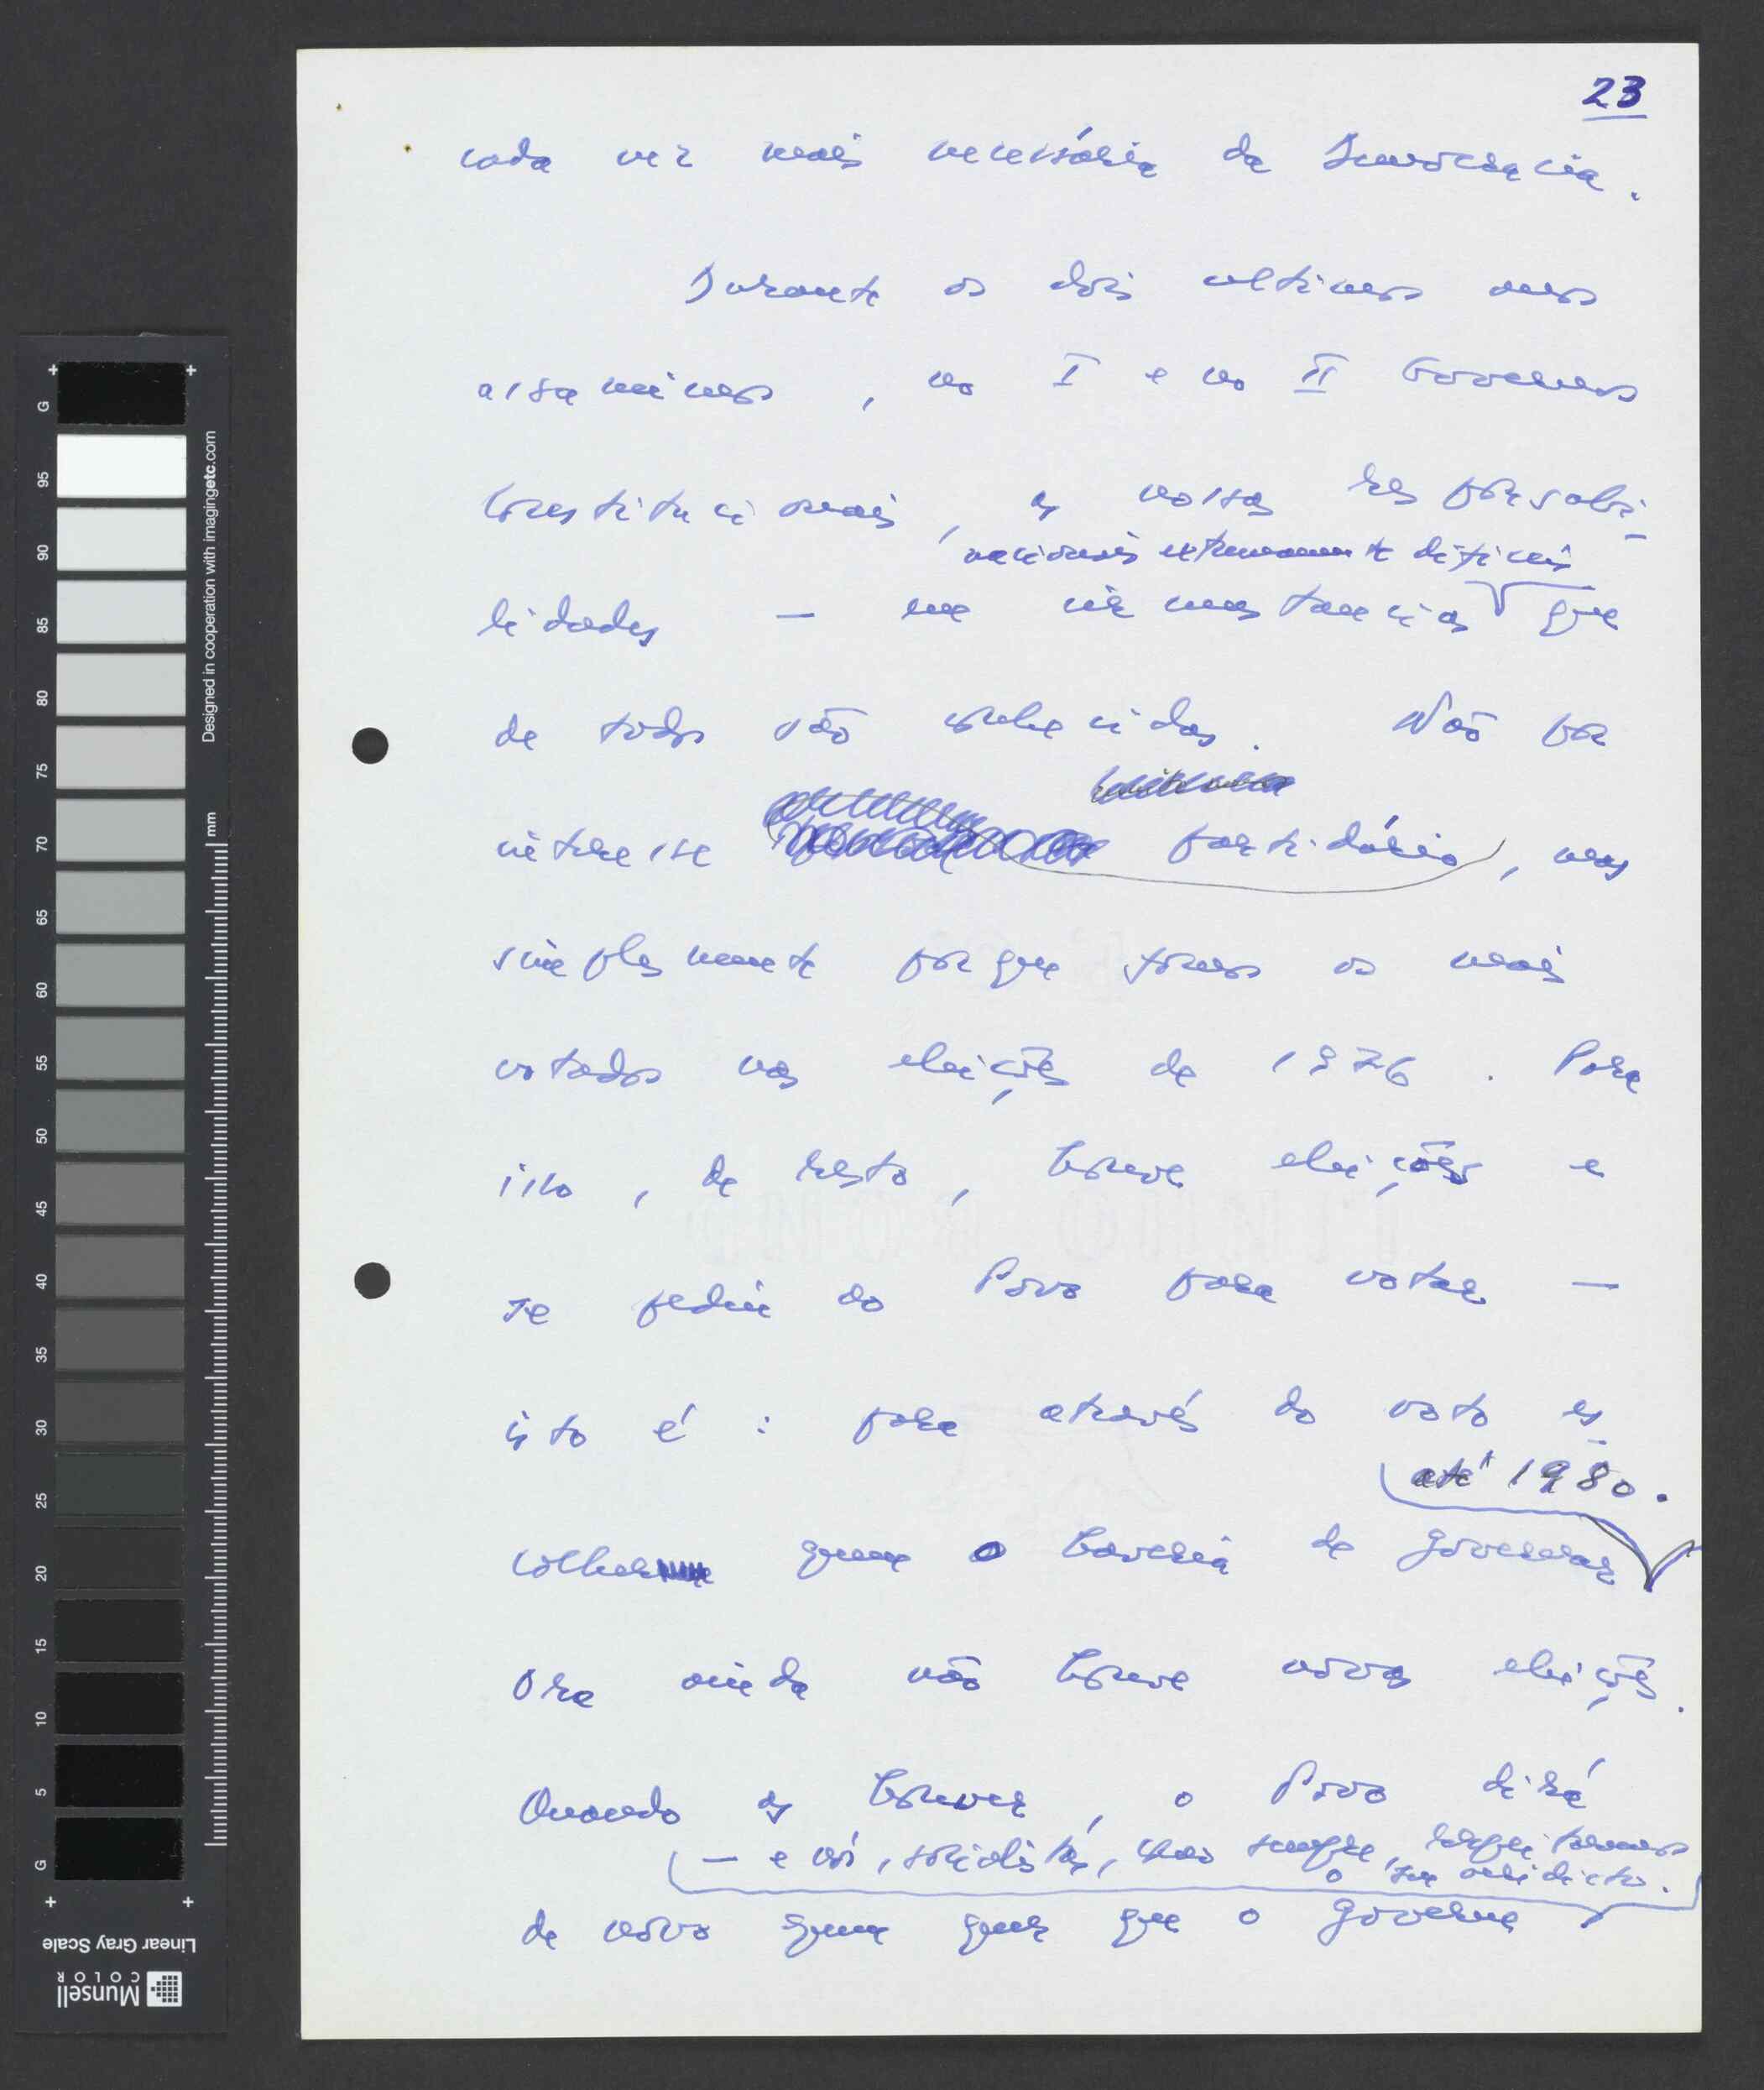 23
cada vez mais necessária da Democracia.
Durante os dois ultimos anos
assumimos, no I e no II Governos
Constitucionais, as nossas responsabi-
nacionais extremamente dificeis
lidades — em circunstancias que
de todos são conhecidas. Não por
interesse partidário, mas
simplesmente porque fomos os mais
votados nas eleições de 1976. Para
isso, de resto, houve eleições e
se pediu ao Povo para votar —
isto é: para através do voto es-
até 1980.
colher quem o haveria de governar
Ora ainda não houve novas eleições.
Quando as houver, o Povo dirá
— e nós, socialistas, como sempre, respeitaremos
o seu veridicto.
de novo quem quer que o governe
G 95 90 85 80 75 70 65 60 55 50 45 40 35 30 25 20 15 10 5 G
Designed in cooperation with imagingetc.com
mm
Linear Gray Scale
Munsell
COLOR